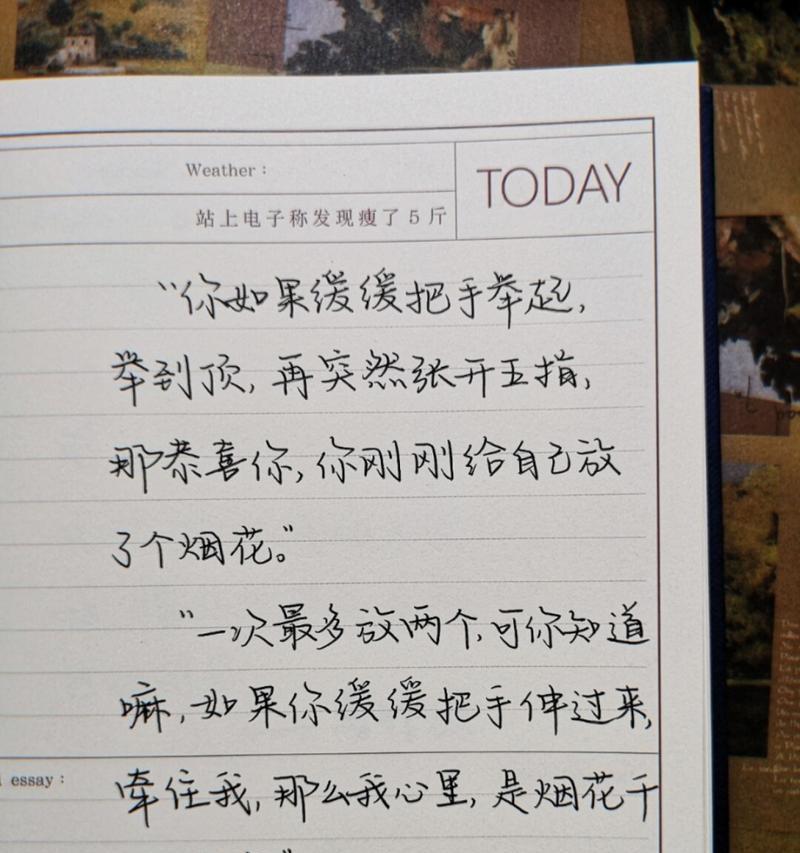 Weather：
TODAY
站上电子称发现瘦了5斤
“你如果缓缓把手举起，
举到顶，再突然张开五指，
那恭喜你，你刚刚给自己放
了个烟花。”
“一次最多放两个，可你知道
嘛，如果你缓缓把手伸过来，
essay：
牵住我，那么我心里，是烟花千